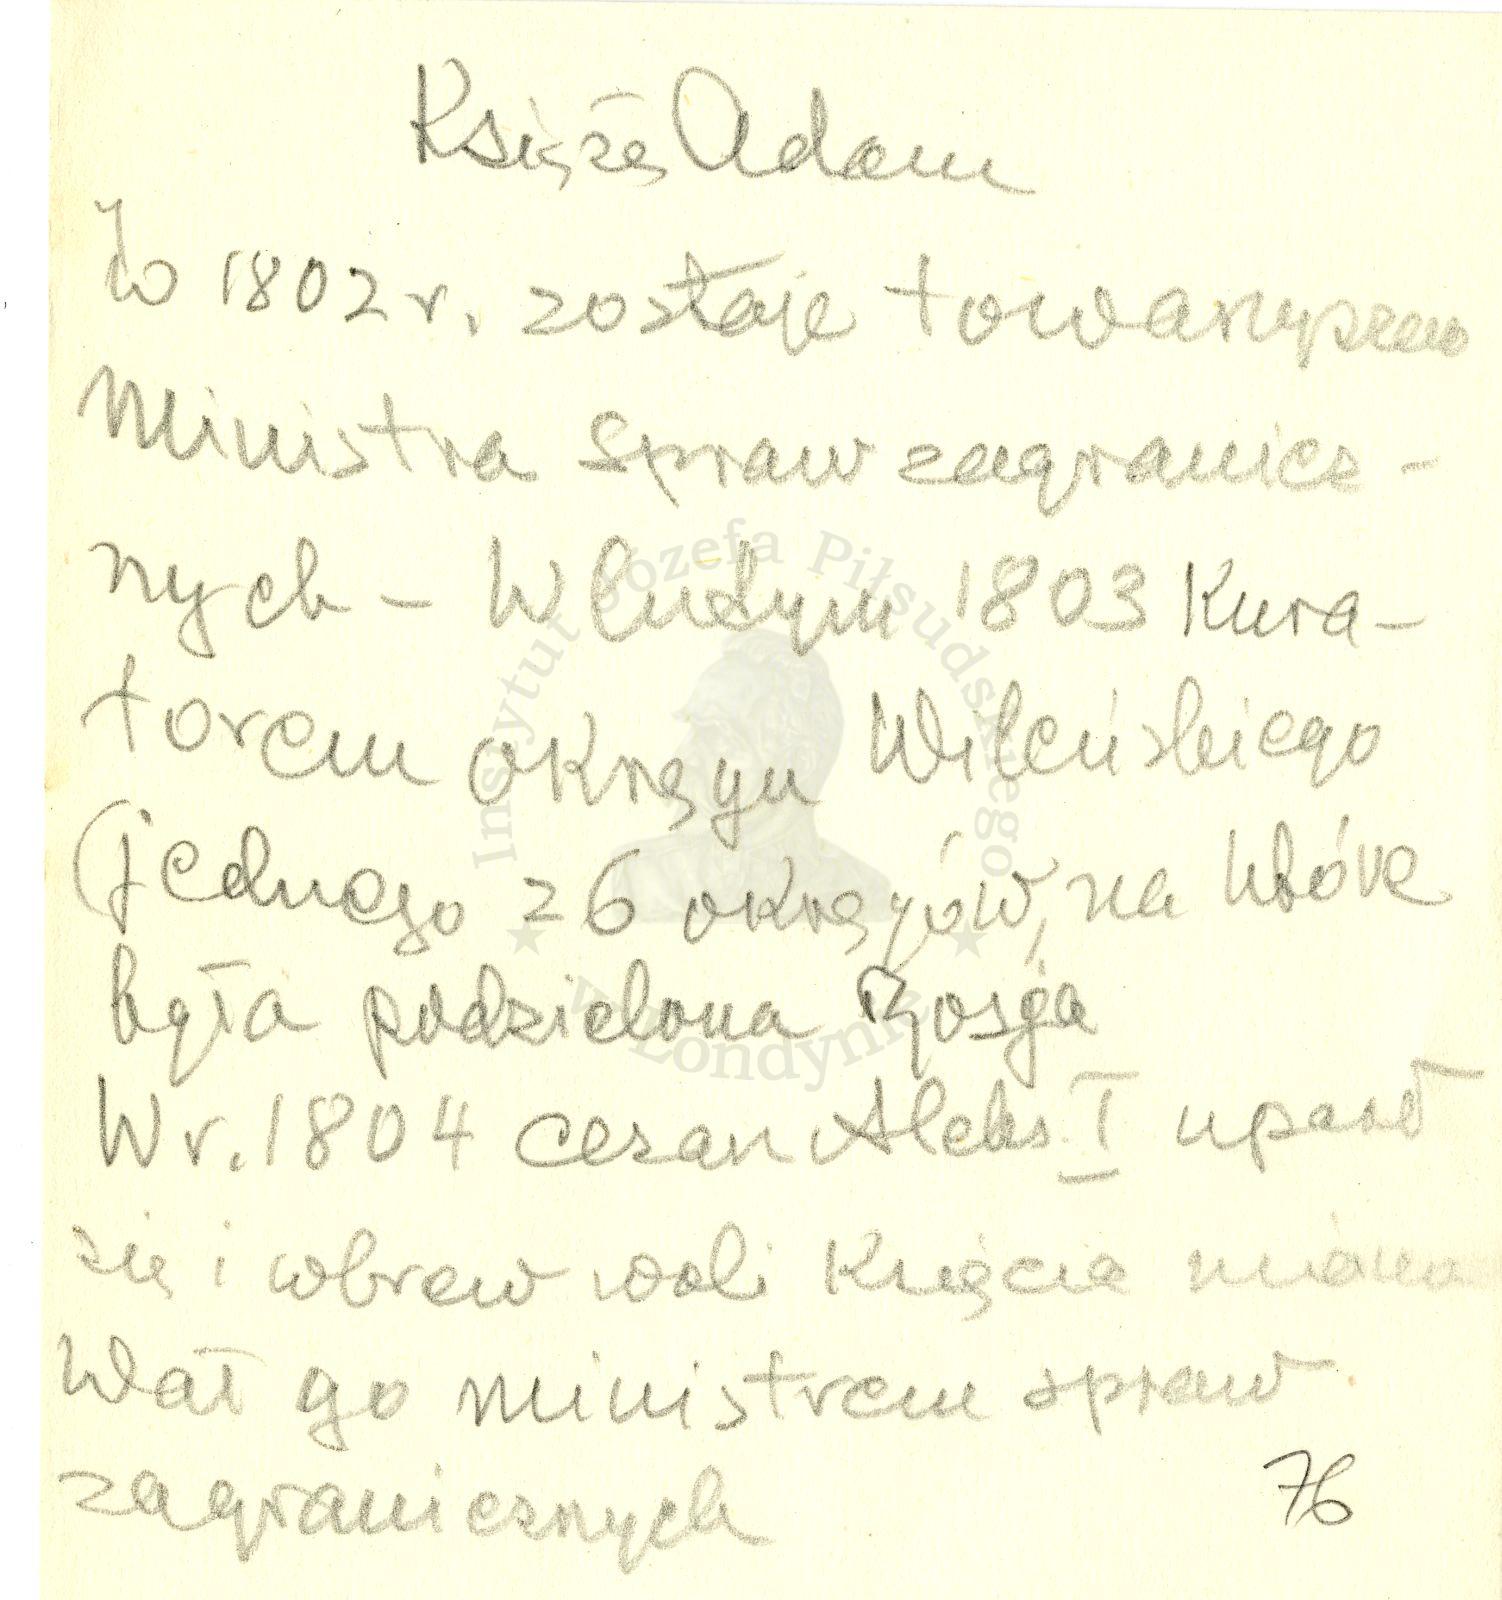 Książę Adam
W 1802 r. zostaje towarzyszem
Ministra Spraw zagranicz-
nych - W lutym 1803 Kura-
torem okręgu Wileńskiego
(jednego z 6 okręgów, na które
była podzielona Rosja
W r. 1804 cezar Aleks. I uparł
się i wbrew woli Księcia miano
wał go ministrem spraw
zagranicznych
76
Instytut Józefa Piłsudskiego
w Londynie